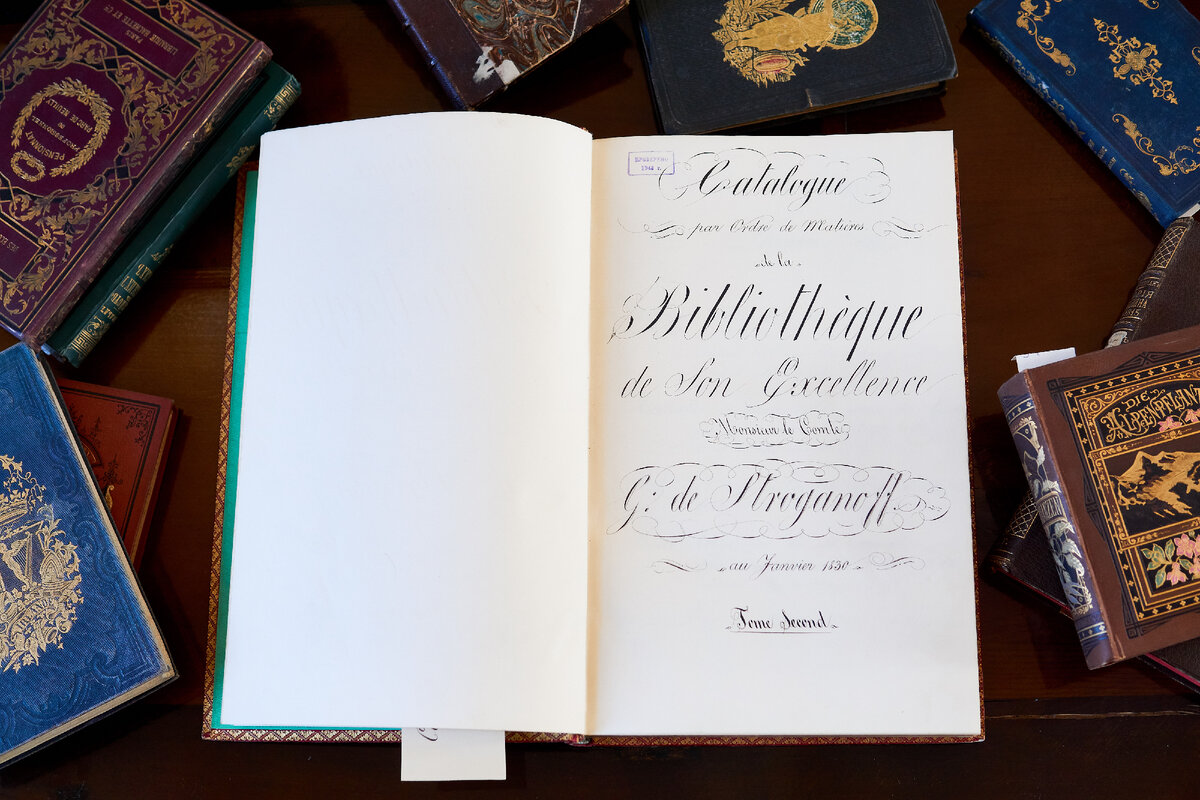 ПРОВЕРЕНО
1948 г.
Catalogue
par Ordre de Matières
de la
Bibliothèque
de Son Excellence
Monsieur le Comte
G: de Stroganoff
au Janvier 1830
Tome Second
PARIS
LIBRAIRIE HACHETTE ET Cie
PENSIONNAT
DE
PARC DE NEUILLY
DIE
ALPENPFLANZEN